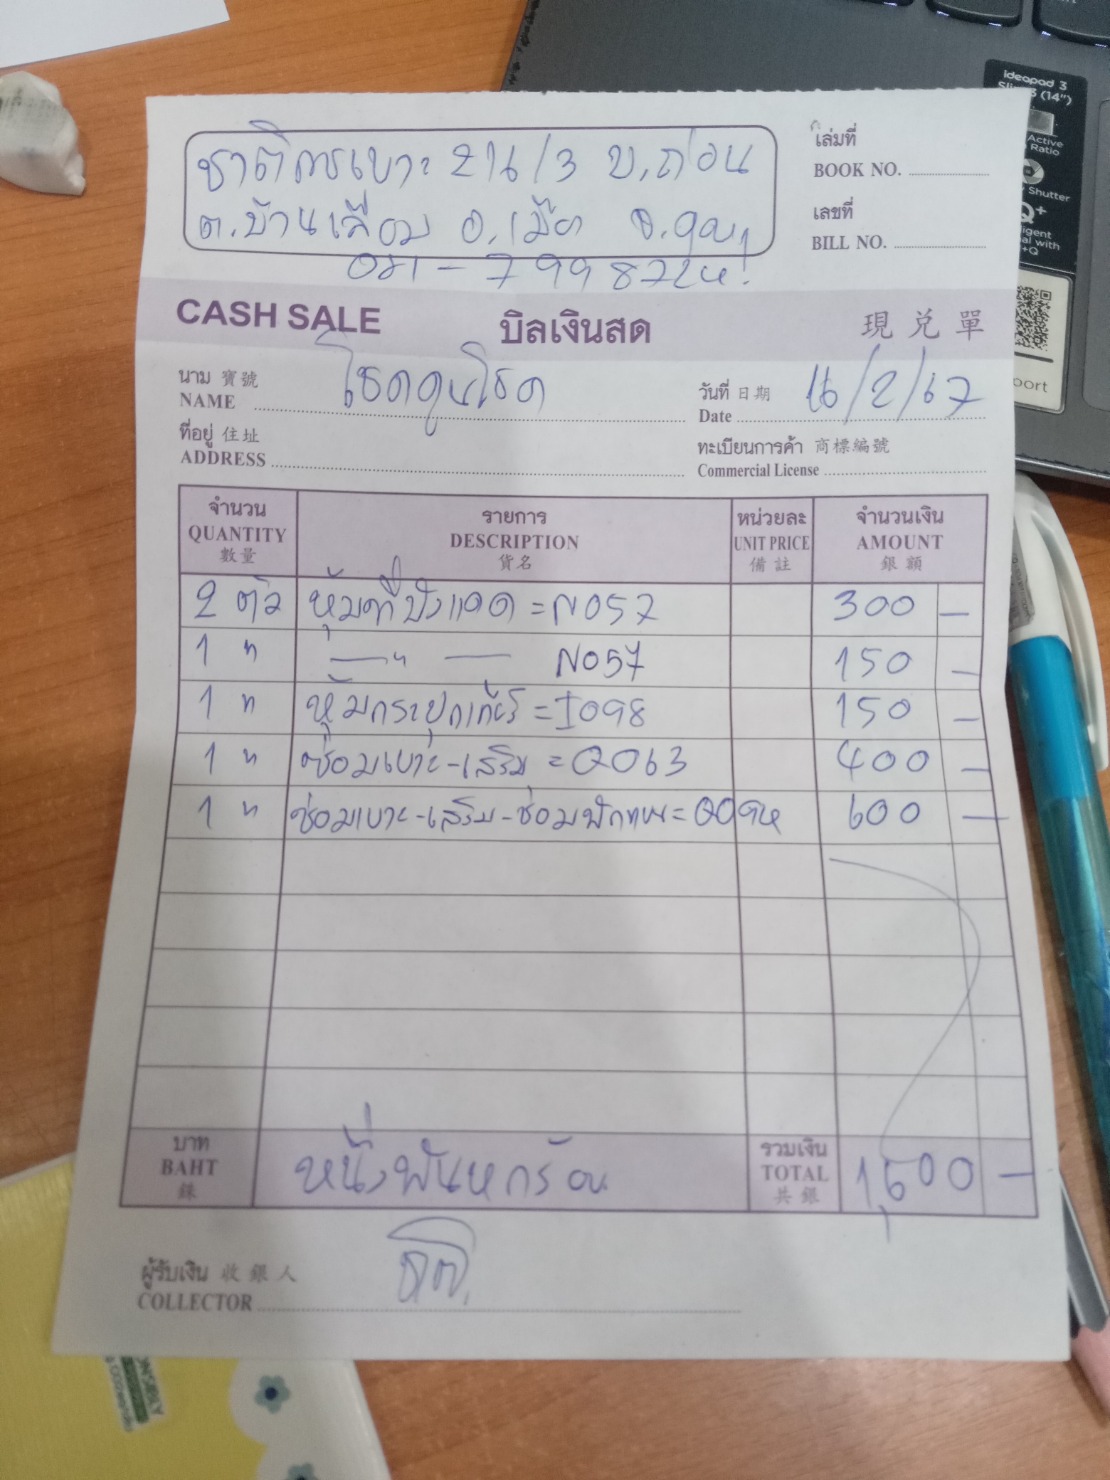 ideapad 3
Slim 3 (14")
Active
Ratio
Shutter
Q+
ชาติการเบาะ 214/3 บ.ถ่อน
เล่มที่
BOOK NO.
ต.บ้านเลื่อม อ.เมือง จ.อุดร
เลขที่
BILL NO.
081-7998724
CASH SALE บิลเงินสด 現兌單
นาม 寶號
NAME โชคคูนโชค
วันที่ 日期
Date 16/2/67
ที่อยู่ 住址
ADDRESS
ทะเบียนการค้า 商標編號
Commercial License
จำนวน รายการ หน่วยละ จำนวนเงิน
QUANTITY DESCRIPTION UNIT PRICE AMOUNT
數量 貨名 備註 銀額
2 ตัว หุ้มที่บังแดด = N057 300 -
1 " —"— N057 150 -
1 " หุ้มกระปุกเกียร์ = I098 150 -
1 " ซ่อมเบาะ-เสริม = Q063 400 -
1 " ซ่อมเบาะ-เสริม-ซ่อมพัก 600 -
บาท
BAHT หนึ่งพันหกร้อย
銖
รวมเงิน
TOTAL 1,600 -
共銀
ผู้รับเงิน 收銀人
COLLECTOR